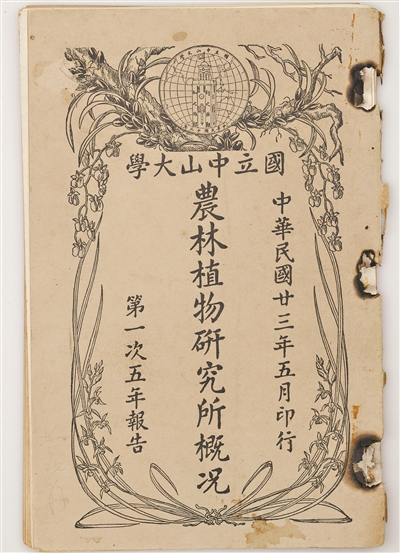 國立中山大學
中華民國廿三年五月印行
農林植物研究所概况
第一次五年報告